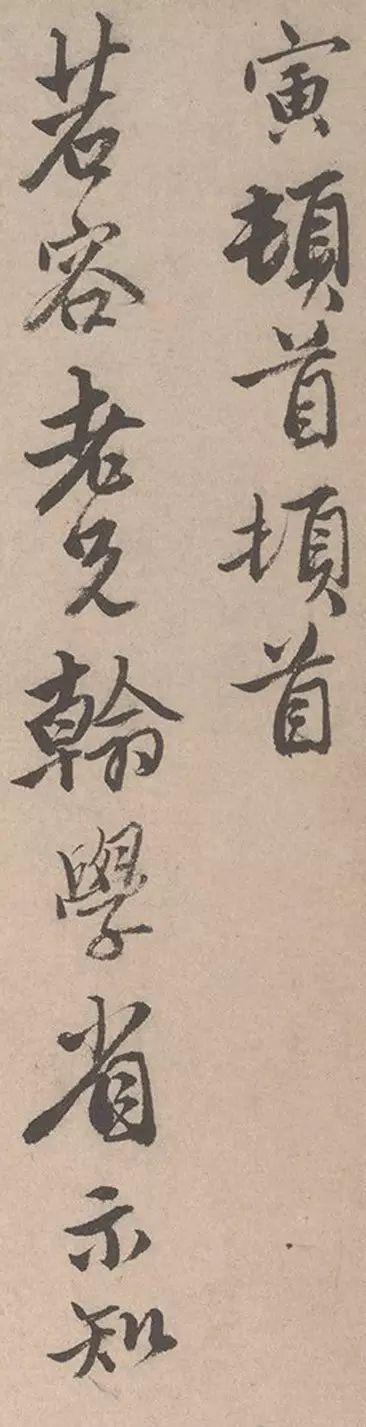 寅頓首頓首
若容老兄翰學省示知